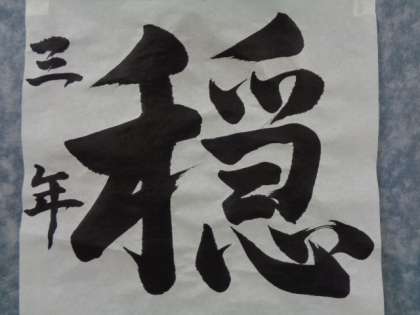 穏
三年